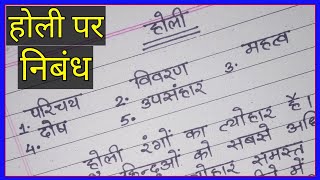 होली पर
निबंध
होली
1. परिचय
2. विवरण
3. महत्व
4. दोष
5. उपसंहार
होली रंगों का त्योहार है।
हिन्दुओं को सबसे अधि
त्योहार समस्त
में